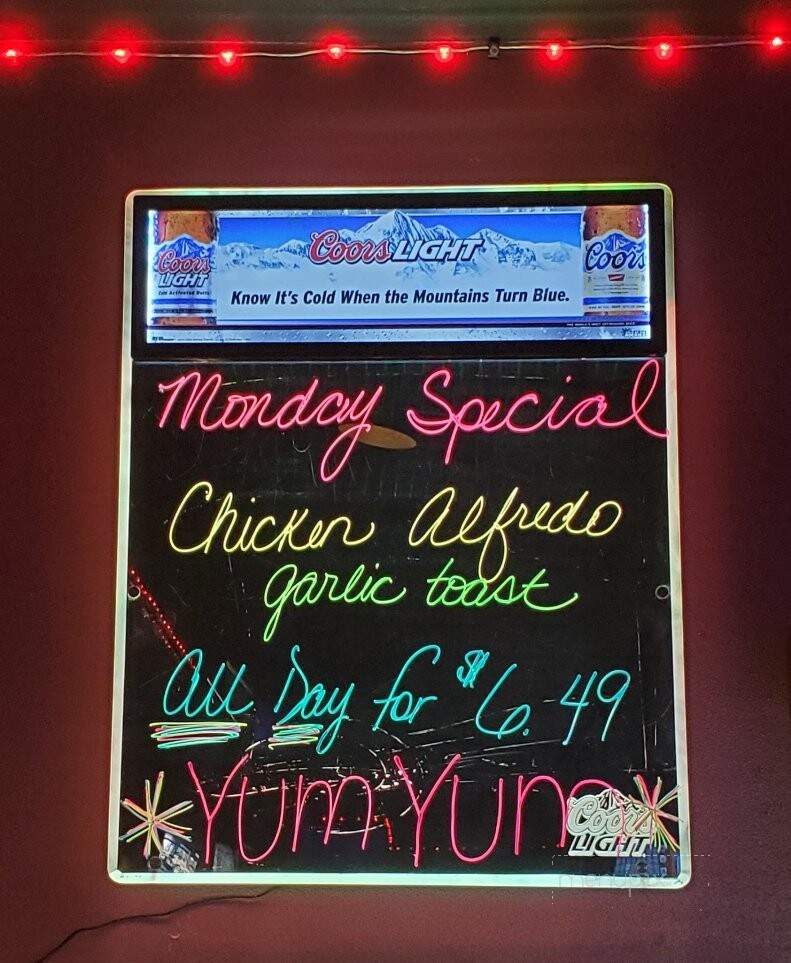 Coors LIGHT
Coors
LIGHT
Coors
Know It's Cold When the Mountains Turn Blue.
Monday Special
Chicken Alfredo
garlic toast
All Day for $6.49
Yum Yum
Coors
LIGHT